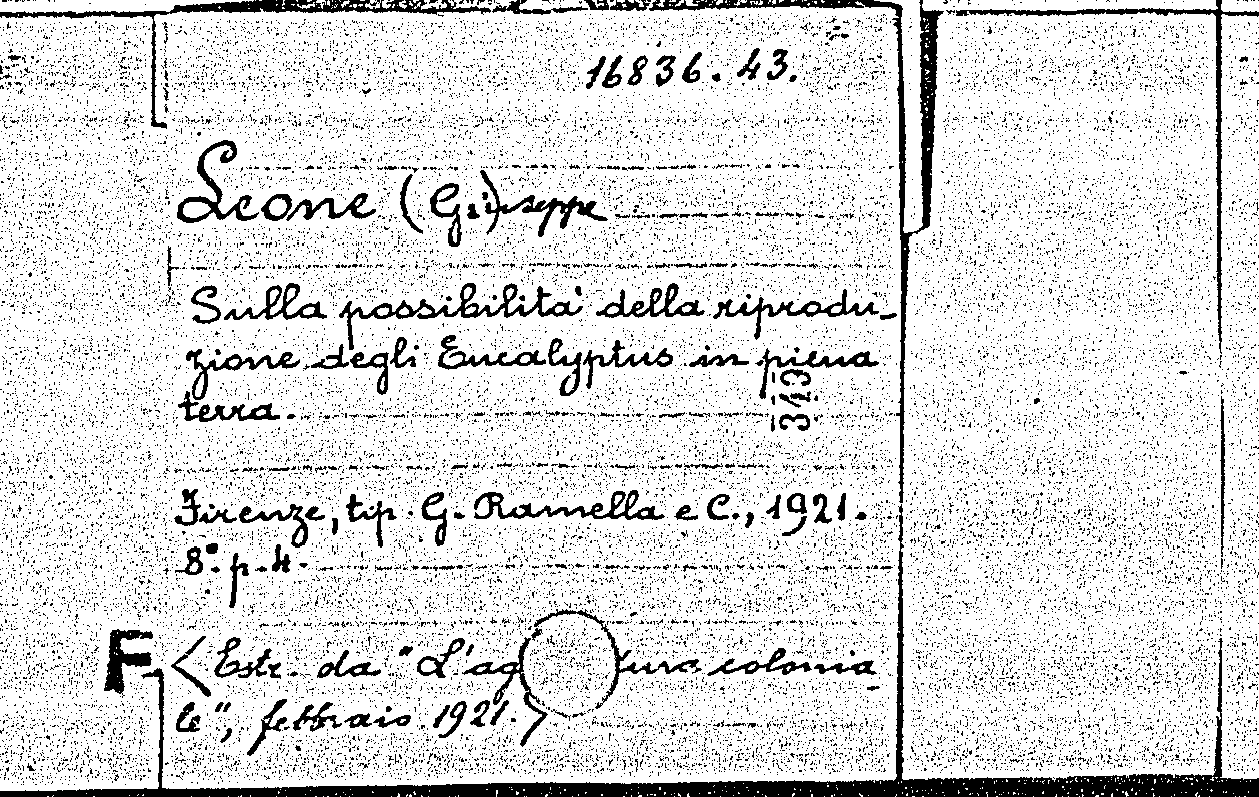 16836.43.
Leone (Gi)useppe
Sulla possibilita' della riprodu-
zione degli Eucalyptus in piena
terra.
343
Firenze, tip. G. Ramella e C., 1921.
8°. p. 4.
F <Estr. da "L'ag tura colonia-
le", febbraio 1921.>